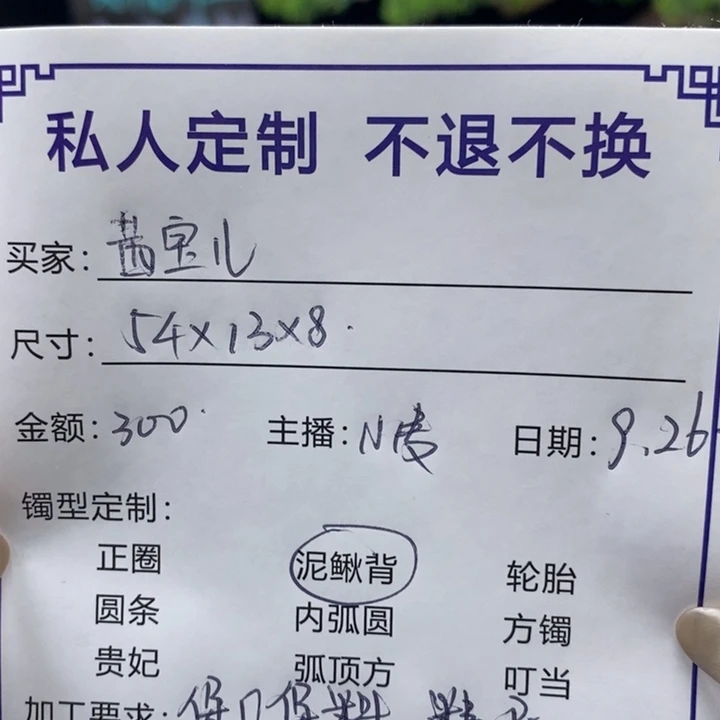 私人定制 不退不换
买家: 茜宝儿
尺寸: 54×13×8
金额: 300 主播: 日期: 9.26
镯型定制:
正圈 泥鳅背 轮胎
圆条 内弧圆 方镯
贵妃 弧顶方 叮当
加工要求: